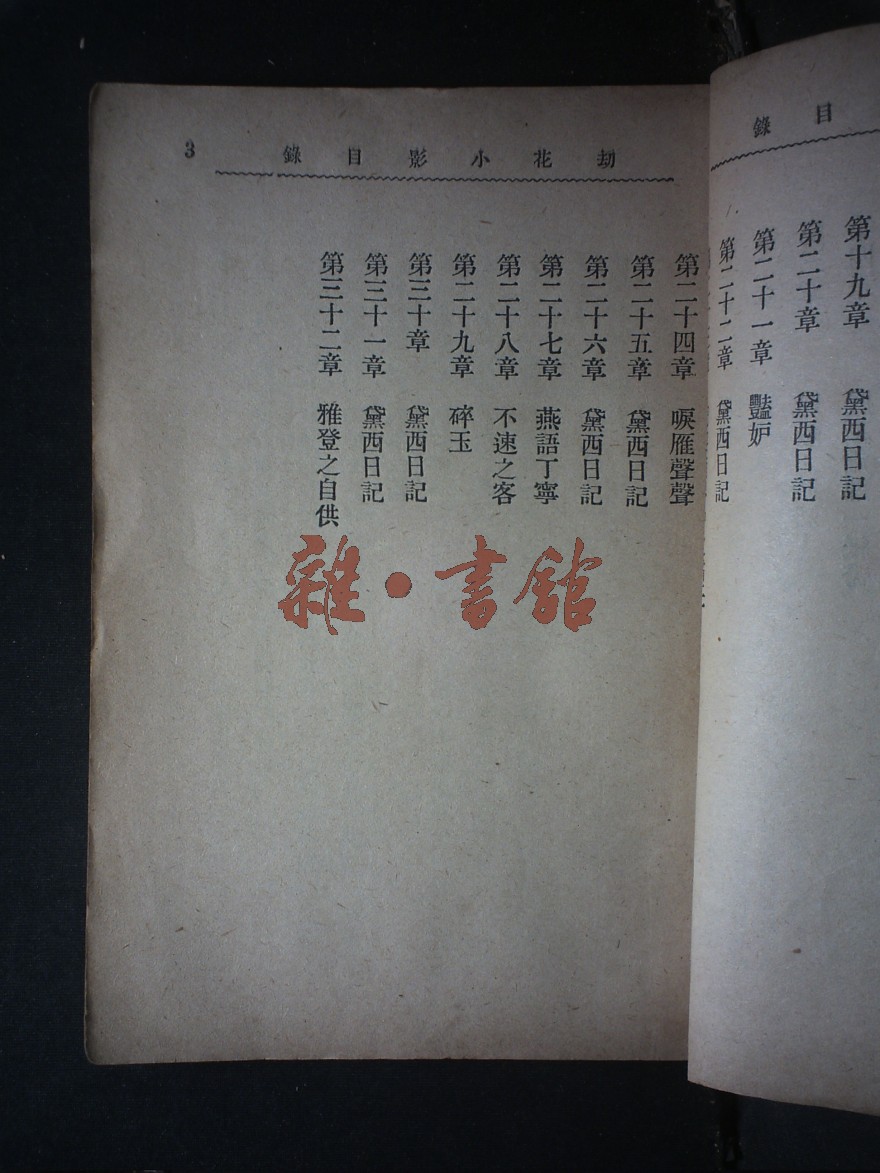 目錄
第十九章　黛西日記
第二十章　黛西日記
第二十一章　豔妒
第二十二章　黛西日記
劫花小影目錄
3
第二十四章　唳雁聲聲
第二十五章　黛西日記
第二十六章　黛西日記
第二十七章　燕語丁寧
第二十八章　不速之客
第二十九章　碎玉
第三十章　黛西日記
第三十一章　黛西日記
第三十二章　雅登之自供
雜·書館